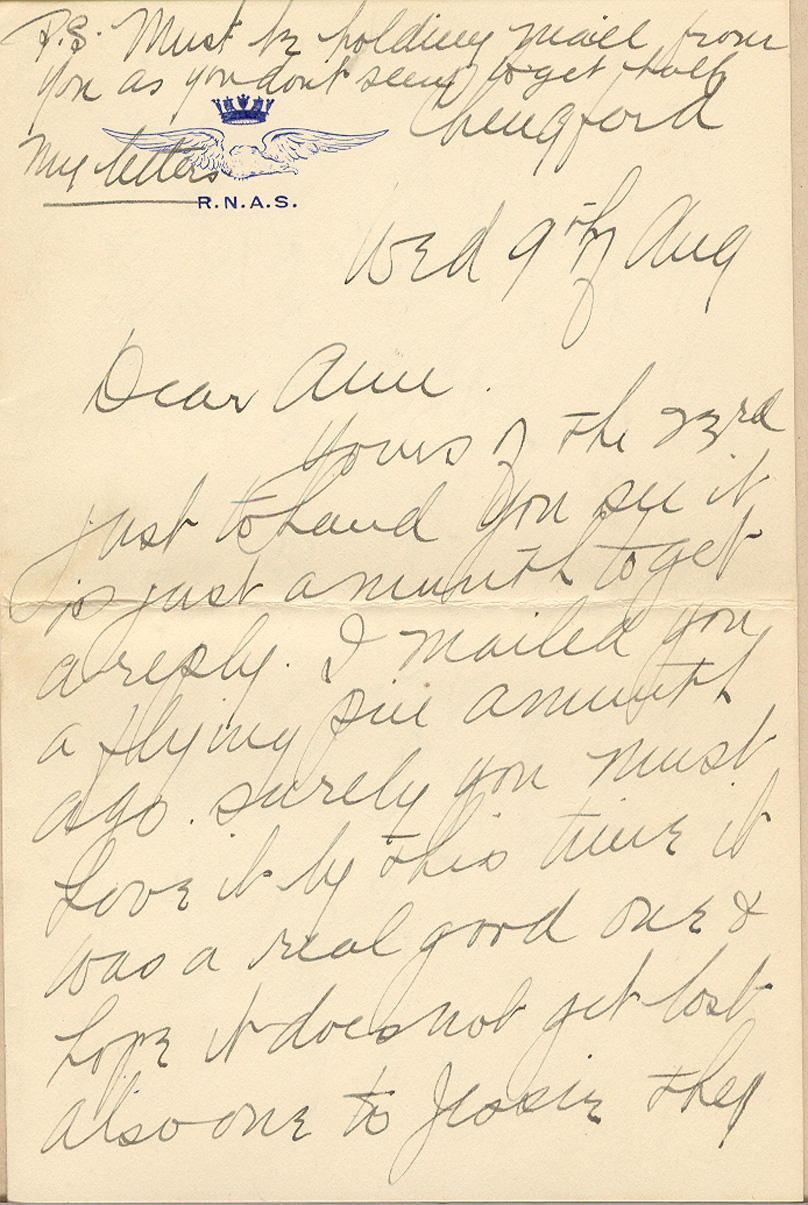 P.S. Must be holding mail from
you as you dont seem to get half
my letters
R.N.A.S.
Chingford
Wed 9th of Aug
Dear Anne.
Yours of the 23rd
just to hand You see it
is just a munth to get
a reply. I mailed you
a flying pin a munth
ago. surely you must
have it by this time it
was a real good one &
hope it does not get lost
also one to Jessie they